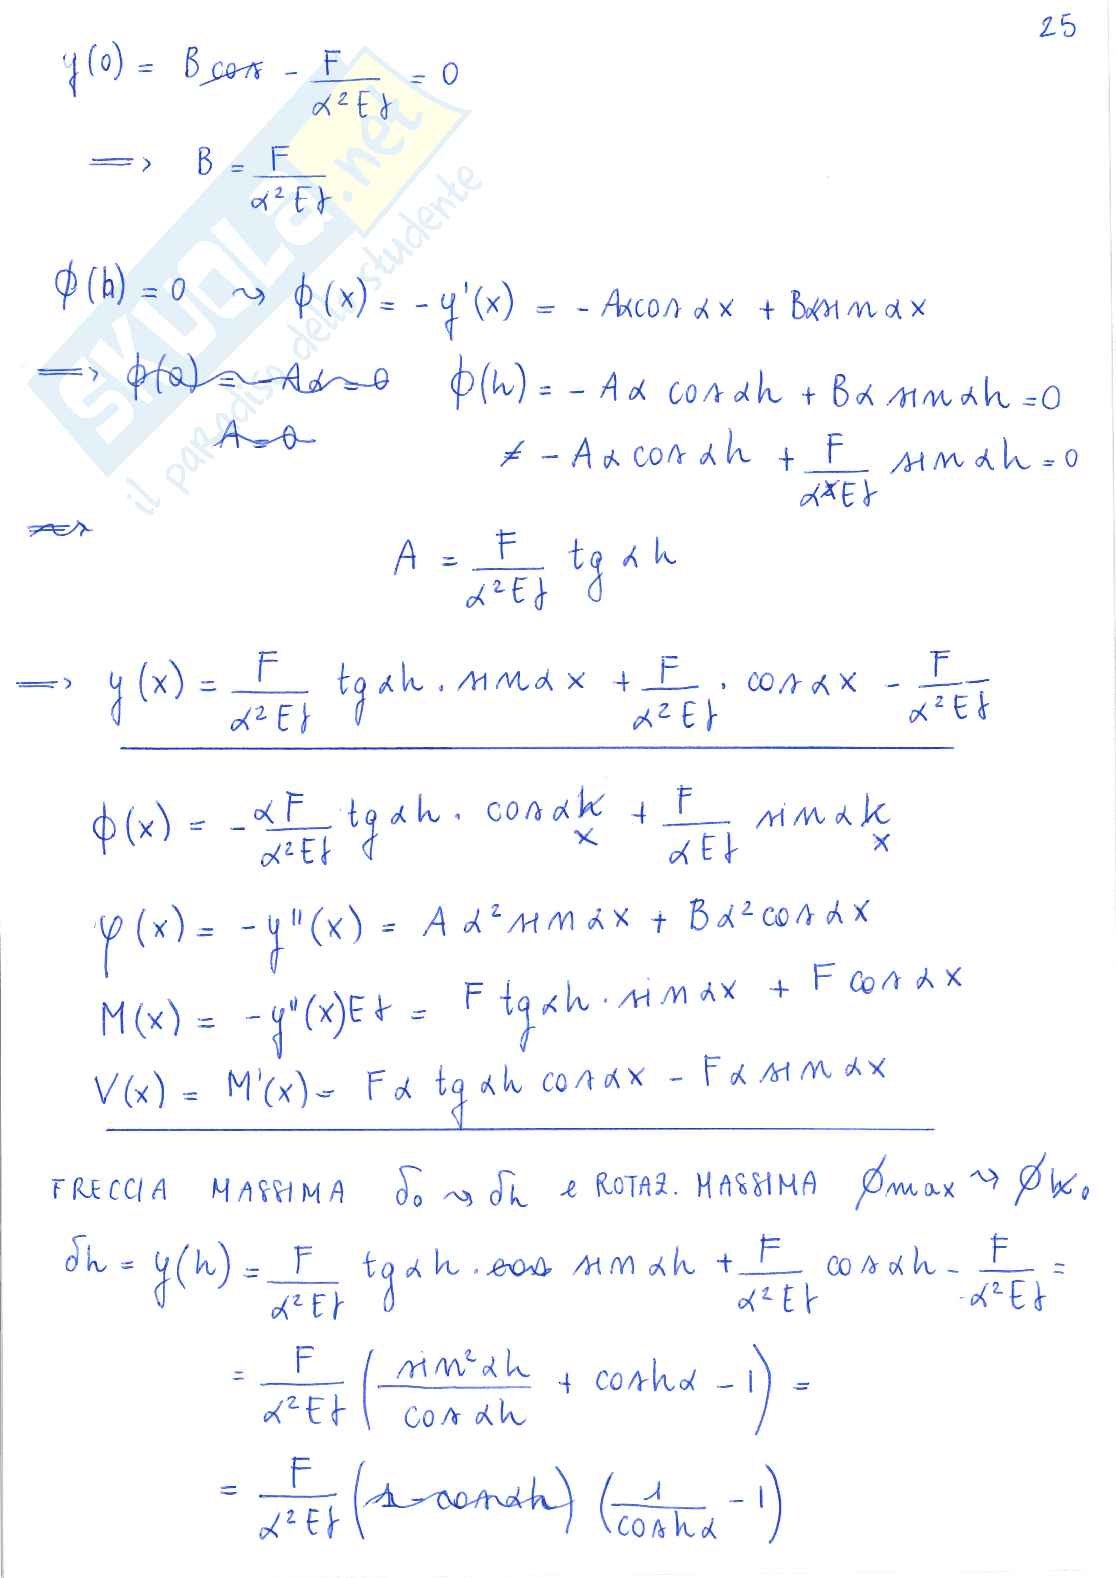 25
y(0) = B c̶o̶s̶ - F/(α²EJ) = 0
==> B = F/(α²EJ)
ϕ(h) = 0 ⤳ ϕ(x) = - y'(x) = - Aαcos αx + Bαsin αx
==> ϕ̶(̶0̶)̶ ̶=̶ ̶-̶A̶α̶ ̶=̶ ̶0̶ ϕ(h) = - Aα cos αh + Bα sin αh = 0
A̶ ̶=̶ ̶0̶ ≠ - Aα cos αh + F/(α̶²̶EJ) sin αh = 0
A = F/(α²EJ) tg αh
==> y(x) = F/(α²EJ) tg αh · sin αx + F/(α²EJ) · cos αx - F/(α²EJ)
ϕ(x) = - αF/(α²EJ) tg αh · cos αx + F/(αEJ) sin αx
φ(x) = - y''(x) = Aα² sin αx + Bα² cos αx
M(x) = - y''(x)EJ = F tg αh · sin αx + F cos αx
V(x) = M'(x) = Fα tg αh cos αx - Fα sin αx
FRECCIA MASSIMA δ₀ ⤳ δh e ROTAZ. MASSIMA ϕmax ⤳ ϕ₀
δh = y(h) = F/(α²EJ) tg αh · c̶o̶s̶ sin αh + F/(α²EJ) cos αh - F/(α²EJ) =
= F/(α²EJ) ( sin²αh/cos αh + cos hα - 1 ) =
= F/(α²EJ) (̶1̶ ̶-̶ ̶c̶o̶s̶α̶h̶)̶ ( 1/cos hα - 1 )
SKUOLA.net
il paradiso dello studente